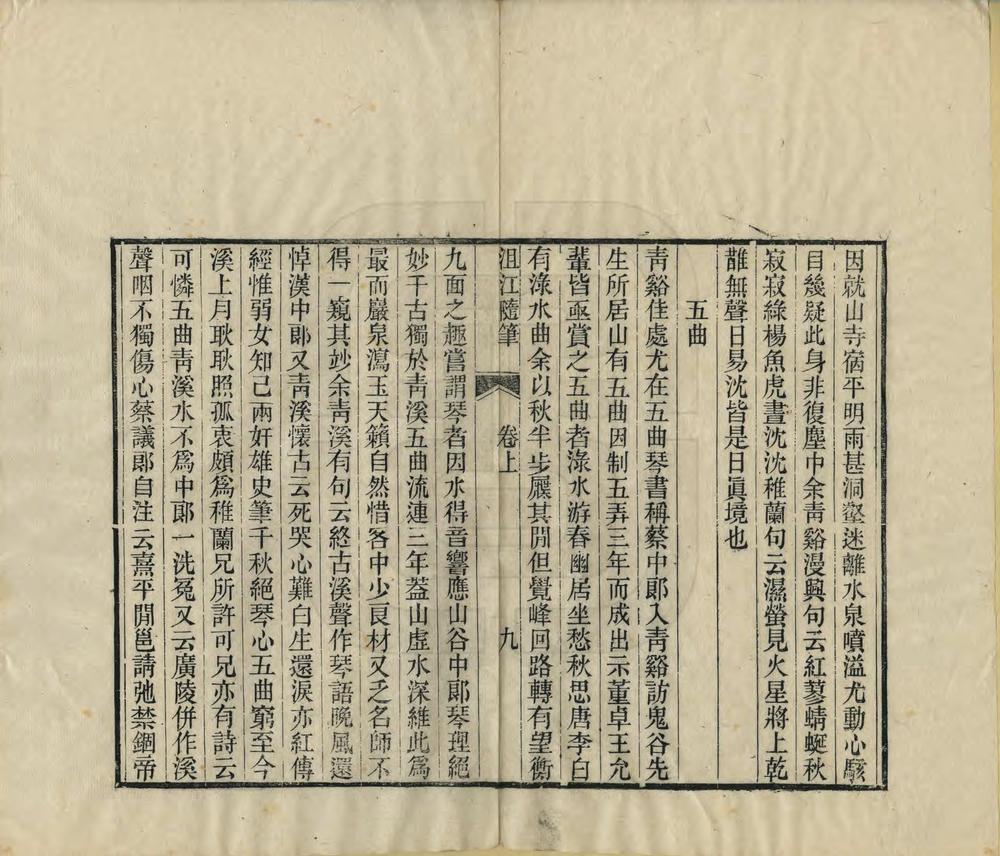 因就山寺宿平明雨甚洞壑迷離水泉噴溢尤動心駭
目幾疑此身非復塵中余靑谿漫興句云紅蓼蜻蜓秋
寂寂綠楊魚虎晝沈沈稚蘭句云濕螢見火星將上乾
誰無聲日易沈皆是日眞境也
五曲
靑谿佳處尤在五曲琴書稱蔡中郞入靑谿訪鬼谷先
生所居山有五曲因制五弄三年而成出示董卓王允
輩皆亟賞之五曲者淥水游春幽居坐愁秋思唐李白
有淥水曲余以秋半步屧其閒但覺峰回路轉有望衡
沮江隨筆 卷上 九
九面之趣嘗謂琴者因水得音響應山谷中郞琴理絕
妙千古獨於靑溪五曲流連三年葢山虛水深維此爲
最而巖泉瀉玉天籟自然惜客中少良材又乏名師不
得一窺其妙余靑溪有句云終古溪聲作琴語晚風還
悼漢中郞又靑溪懷古云死哭心難白生還淚亦紅傳
經惟弱女知己兩奸雄史筆千秋絕琴心五曲窮至今
溪上月耿耿照孤衷頗爲稚蘭兄所許可兄亦有詩云
可憐五曲靑溪水不爲中郞一洗冤又云廣陵併作溪
聲咽不獨傷心蔡議郞自注云熹平閒邕請弛禁錮帝